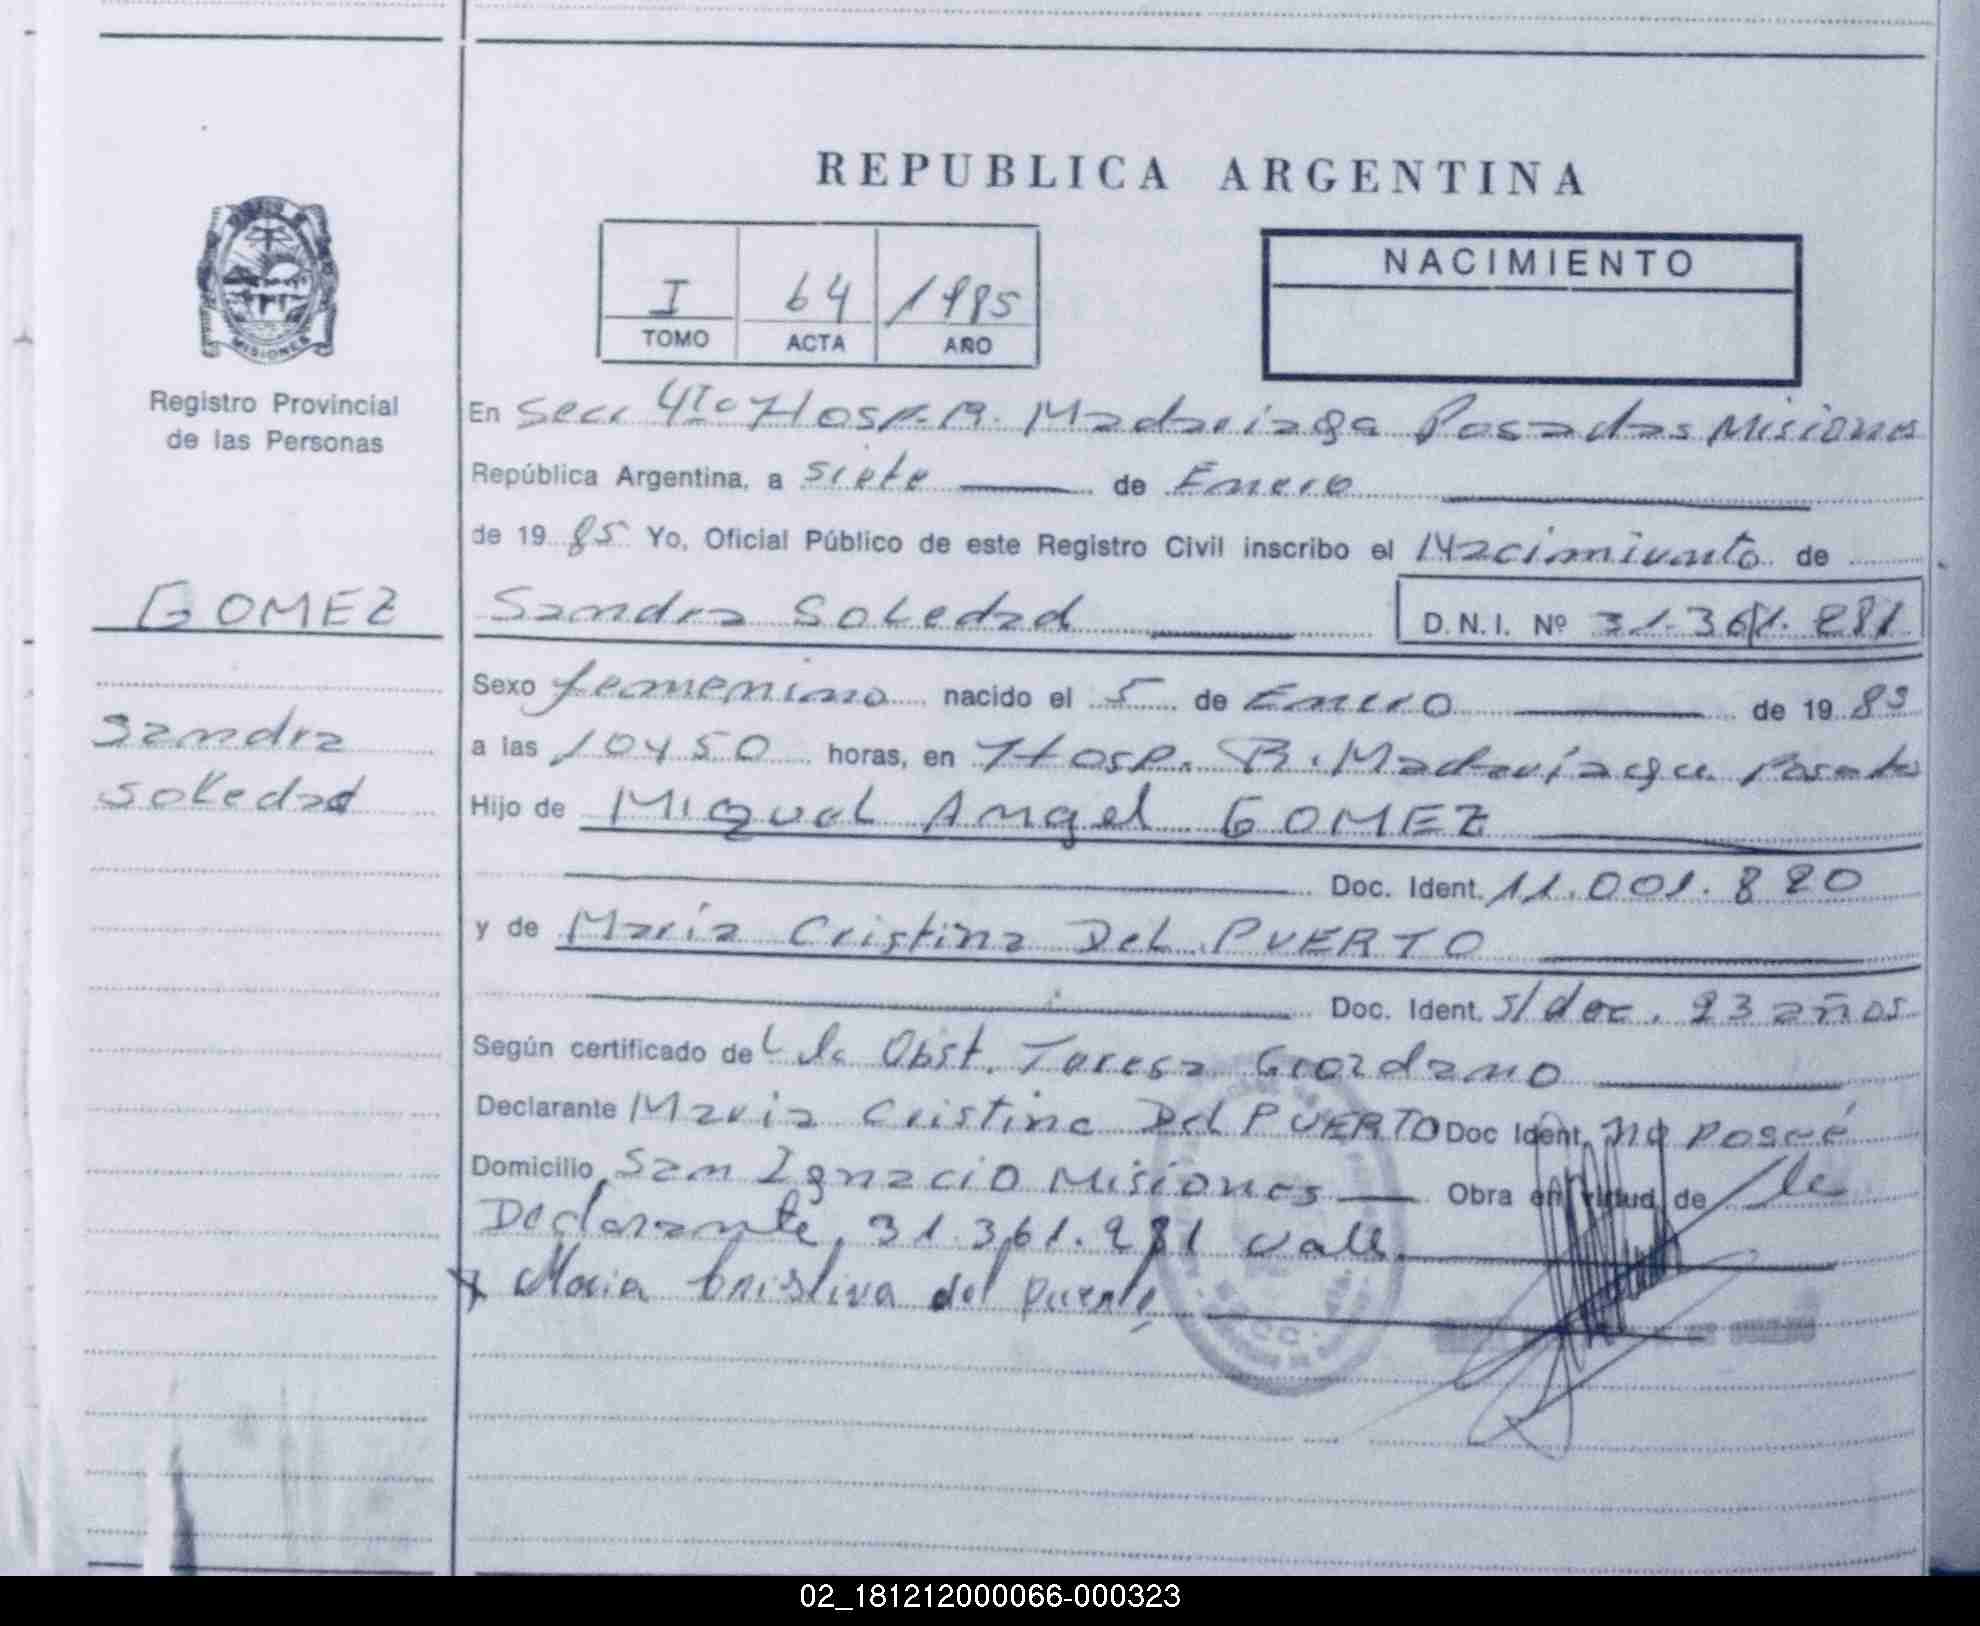 REPUBLICA ARGENTINA
I 64 1985
TOMO ACTA AÑO
NACIMIENTO
MISIONES
Registro Provincial
de las Personas
En Secc 4TA Hosp. R. Madariaga Posadas Misiones
República Argentina, a siete de Enero
de 19 85 Yo, Oficial Público de este Registro Civil inscribo el Nacimiento de
GOMEZ
Sandra Soledad D.N.I. Nº 31.361.281
Sexo femenino nacido el 5 de Enero de 19 85
Sandra
Soledad
a las 10 y 50 horas, en Hosp. R. Madariaga Posadas
Hijo de Miguel Angel GOMEZ
Doc. Ident. 11.001.820
y de María Cristina Del PUERTO
Doc. Ident. s/doc. 23 años
Según certificado de la Obst. Teresa Giordano
Declarante Maria Cristina Del PUERTO Doc Ident. no poseé
Domicilio San Ignacio Misiones Obra en virtud de la
Declarante, 31.361.281 vale.
x Maria Cristina del Puerto
02_181212000066-000323